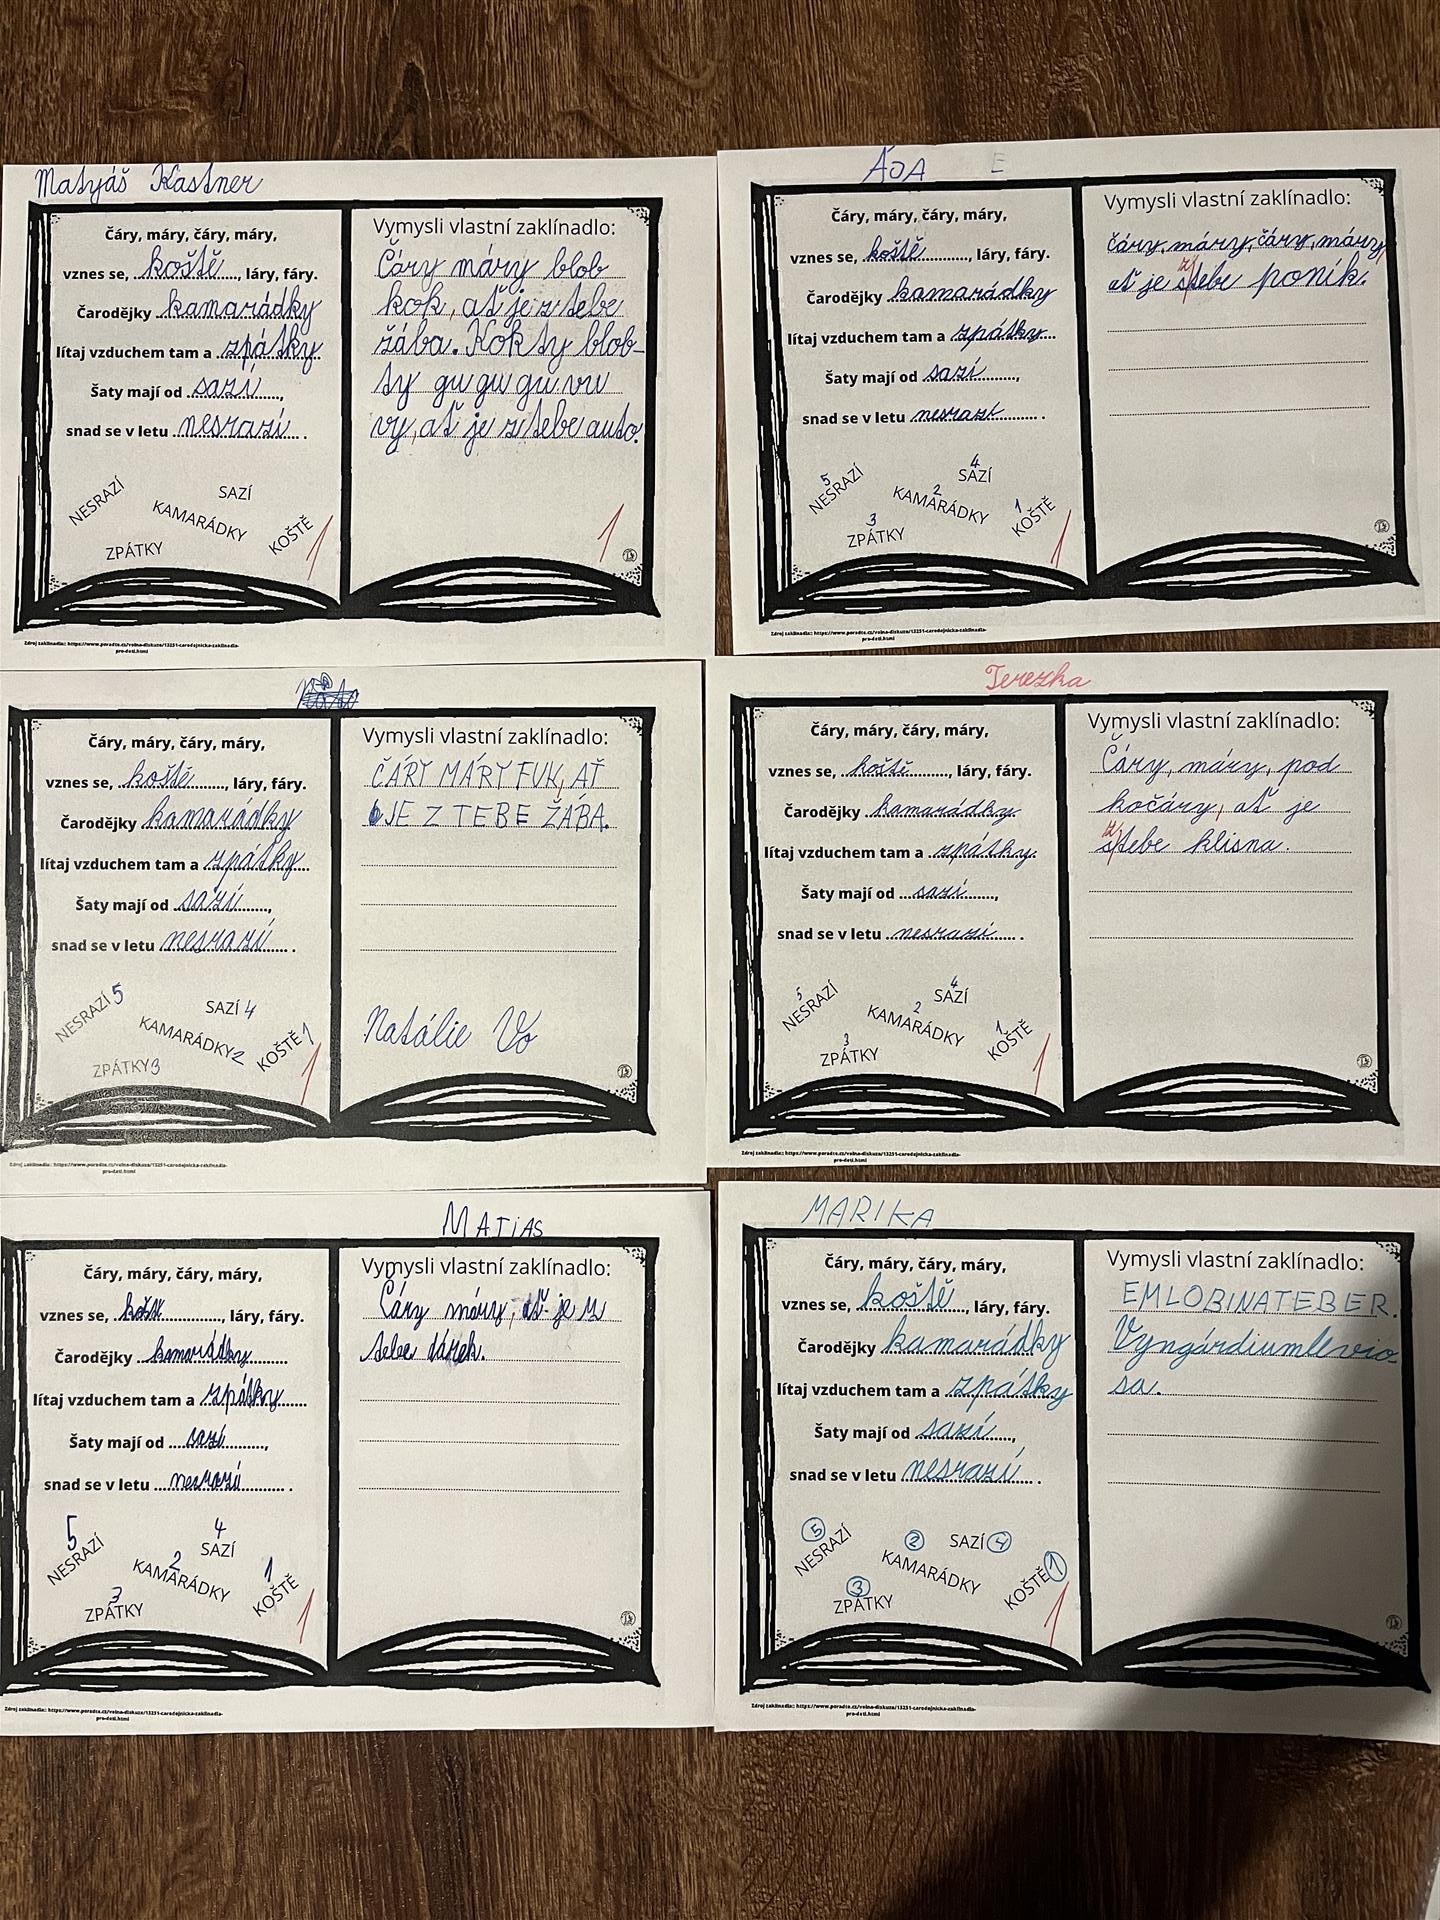 Matyáš Kastner
Čáry, máry, čáry, máry,
vznes se, koště, láry, fáry.
Čarodějky kamarádky
lítaj vzduchem tam a zpátky
Šaty mají od sazí,
snad se v letu nesrazí.
NESRAZÍ
SAZÍ
KAMARÁDKY
KOŠTĚ
ZPÁTKY
1
Vymysli vlastní zaklínadlo:
Čáry máry blob
kok, ať je z tebe
žába. Kokty blob-
ty gu gu gu vu
vy, ať je z tebe auto.
1
Zdroj zaklínadla: https://www.poradte.cz/volna-diskuze/13251-carodejnicka-zaklinadla-
pro-deti.html
ÁJA E
Čáry, máry, čáry, máry,
vznes se, koště, láry, fáry.
Čarodějky kamarádky
lítaj vzduchem tam a zpátky
Šaty mají od sazí,
snad se v letu nesrazí.
5 NESRAZÍ
4 SAZÍ
2 KAMARÁDKY
1 KOŠTĚ
3 ZPÁTKY
1
Vymysli vlastní zaklínadlo:
čáry, máry, čáry, máry,
ať je z stebe poník.
Zdroj zaklínadla: https://www.poradte.cz/volna-diskuze/13251-carodejnicka-zaklinadla-
pro-deti.html
Čáry, máry, čáry, máry,
vznes se, koště, láry, fáry.
Čarodějky kamarádky
lítaj vzduchem tam a zpátky
Šaty mají od sazí,
snad se v letu nesrazí.
NESRAZÍ 5
SAZÍ 4
KAMARÁDKY 2
KOŠTĚ 1
ZPÁTKY 3
1
Vymysli vlastní zaklínadlo:
ČÁRY MÁRY FUK, AŤ
JE Z TEBE ŽÁBA.
Natálie Vo
Zdroj zaklínadla: https://www.poradte.cz/volna-diskuze/13251-carodejnicka-zaklinadla-
pro-deti.html
Terezka
Čáry, máry, čáry, máry,
vznes se, koště, láry, fáry.
Čarodějky kamarádky
lítaj vzduchem tam a zpátky
Šaty mají od sazí,
snad se v letu nesrazí.
5 NESRAZÍ
4 SAZÍ
2 KAMARÁDKY
1 KOŠTĚ
3 ZPÁTKY
1
Vymysli vlastní zaklínadlo:
Čáry, máry, pod
kočáry, ať je
z stebe klisna.
Zdroj zaklínadla: https://www.poradte.cz/volna-diskuze/13251-carodejnicka-zaklinadla-
pro-deti.html
MATiAS
Čáry, máry, čáry, máry,
vznes se, koště, láry, fáry.
Čarodějky kamarádky
lítaj vzduchem tam a zpátky
Šaty mají od sazí,
snad se v letu nesrazí.
5 NESRAZÍ
4 SAZÍ
2 KAMARÁDKY
1 KOŠTĚ
3 ZPÁTKY
1
Vymysli vlastní zaklínadlo:
Čáry máry, ať je z
tebe dárek.
Zdroj zaklínadla: https://www.poradte.cz/volna-diskuze/13251-carodejnicka-zaklinadla-
pro-deti.html
MARIKA
Čáry, máry, čáry, máry,
vznes se, koště, láry, fáry.
Čarodějky kamarádky
lítaj vzduchem tam a zpátky
Šaty mají od sazí,
snad se v letu nesrazí.
5 NESRAZÍ
2 KAMARÁDKY
SAZÍ 4
KOŠTĚ 1
3 ZPÁTKY
1
Vymysli vlastní zaklínadlo:
EMLOBINATEBER.
Vyngárdiumlevio-
sa.
Zdroj zaklínadla: https://www.poradte.cz/volna-diskuze/13251-carodejnicka-zaklinadla-
pro-deti.html